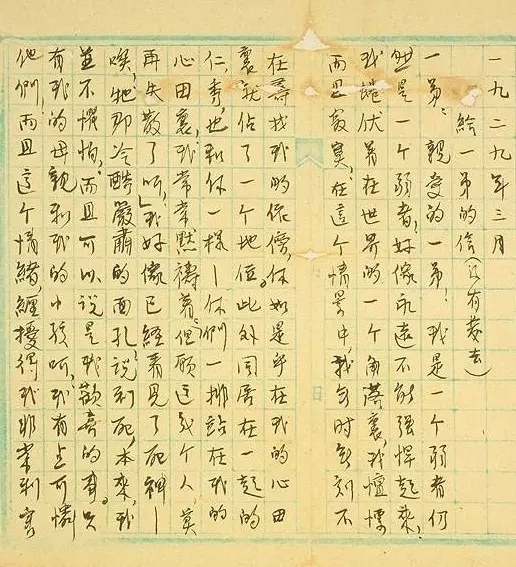 一九二九年三月
給一弟的信（沒有發去）
一弟：親愛的一弟！我是一個弱者仍
然是一个弱者，好像永遠不能强悍起來，
我捲伏着在世界的一个角落裏，我
而且寂寞，在這个情景中，我無时無刻不
在尋找我的偎傍，你如是乎在我的心田
裏就佔了一个地位。此外同居在一起的
仁，秀，也和你一樣—你们一排站在我的
心田裏，我常常默禱着：但願這幾个人莫
再失散了呵！我好像已經看見了死神—
唉，牠那冷酷嚴肅的面孔，說到死，本來，我
並不懼怕，而且可以說是我歡喜的事。只
有我的母親和我的小孩呵，我有点可憐
他們，而且這个情緒，纏擾得我非常利害